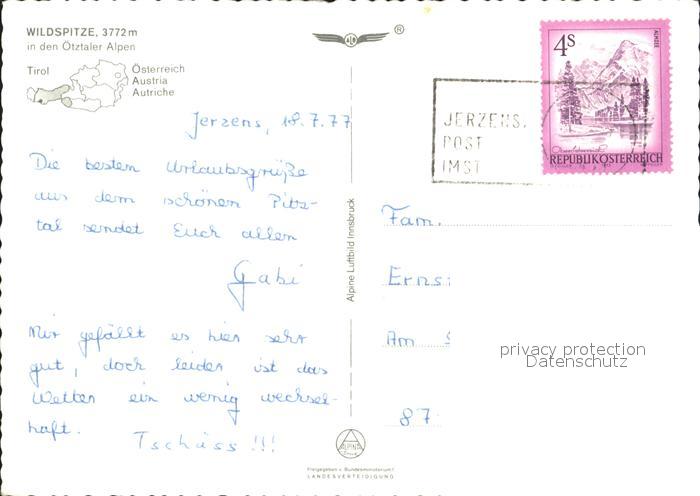 WILDSPITZE, 3772 m
in den Ötztaler Alpen
Tirol
Österreich
Austria
Autriche
®
4S
ALMSEE
REPUBLIK ÖSTERREICH
JERZENS,
POST
IMST
Jerzens, 18.7.77
Die besten Urlaubsgrüße
aus dem schönen Pitz-
tal sendet Euch allen
Gabi
Mir gefällt es hier sehr
gut, doch leider ist das
Wetter ein wenig wechsel-
haft. Tschüss!!!
Alpine Luftbild Innsbruck
Fam.
Erns
Am
87
privacy protection
Datenschutz
ALPINA
Freigegeben v. Bundesministerium f.
LANDESVERTEIDIGUNG